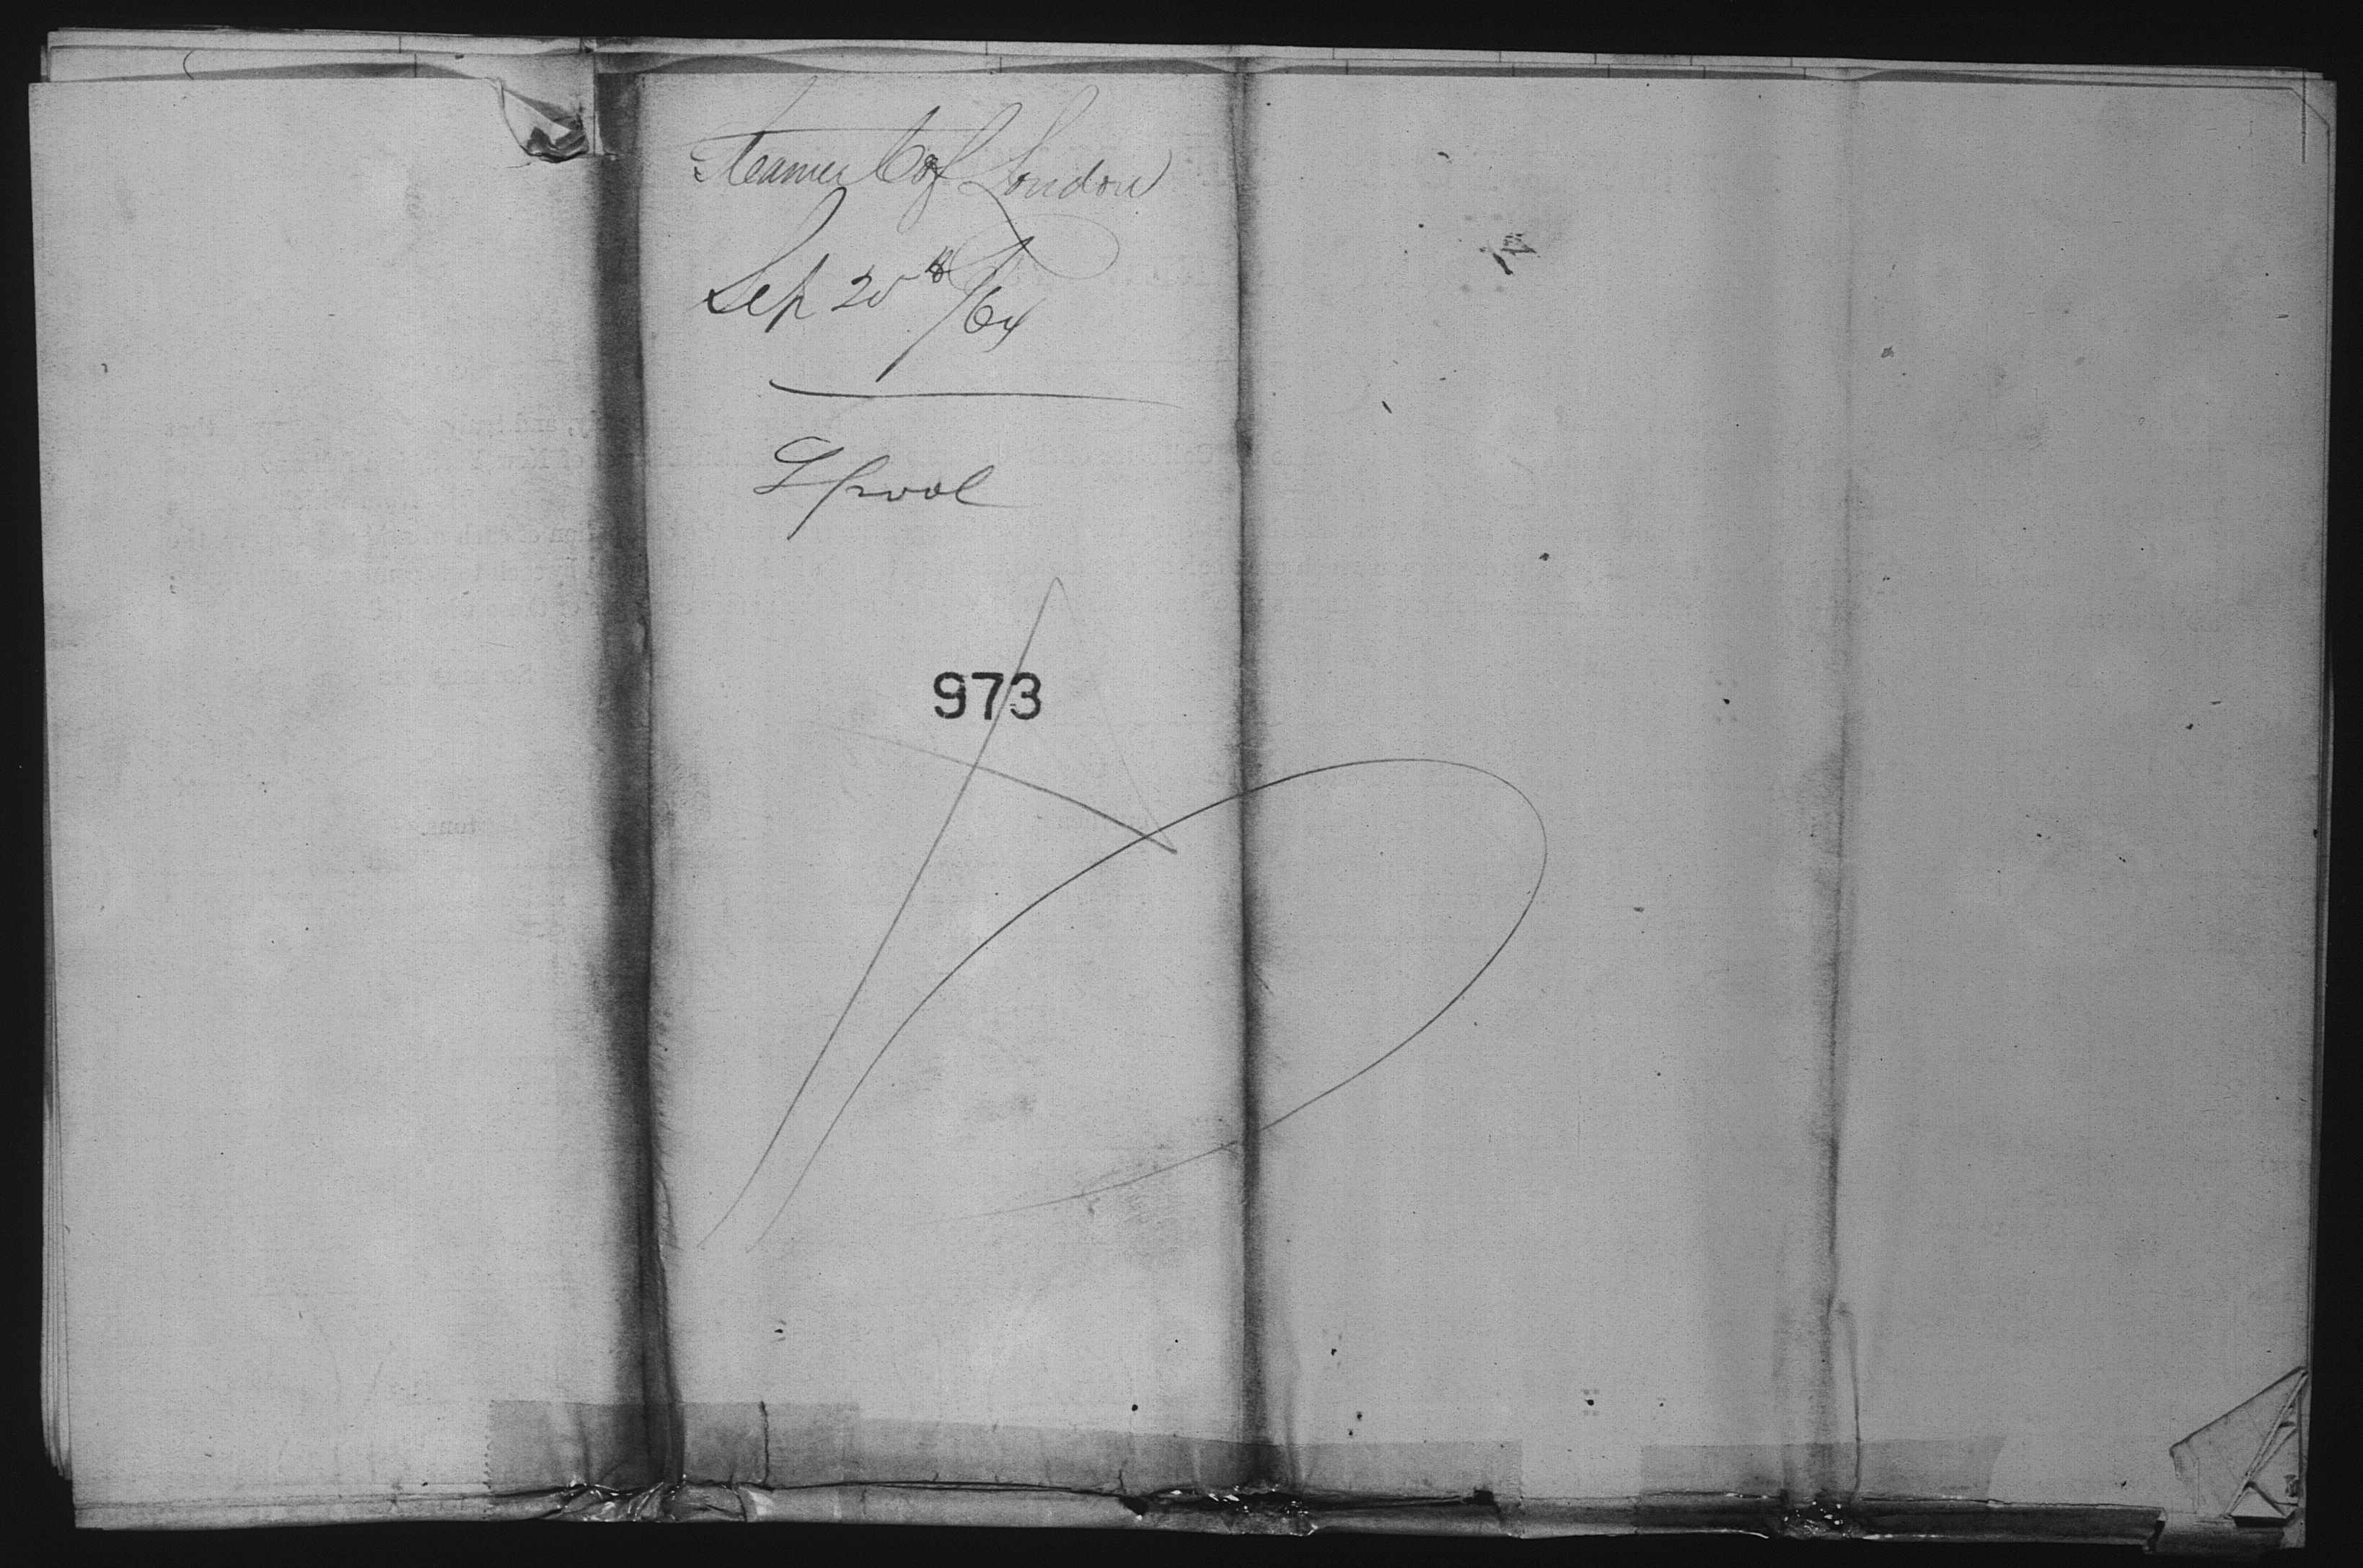 Steamer C of London
Sep 20th /64
Lpool
973